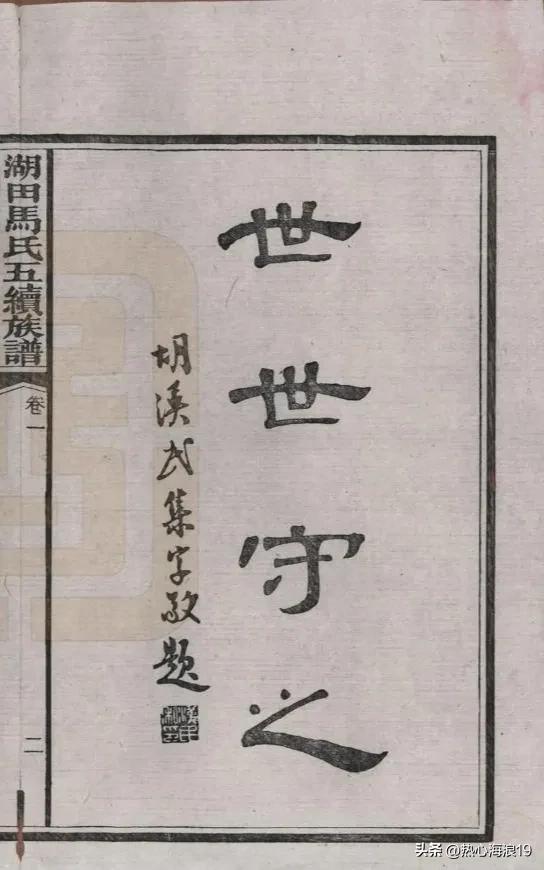 世世守之
胡漢民集字敬題
湖田馬氏五續族譜
卷一
二
头条 @热心海浪19